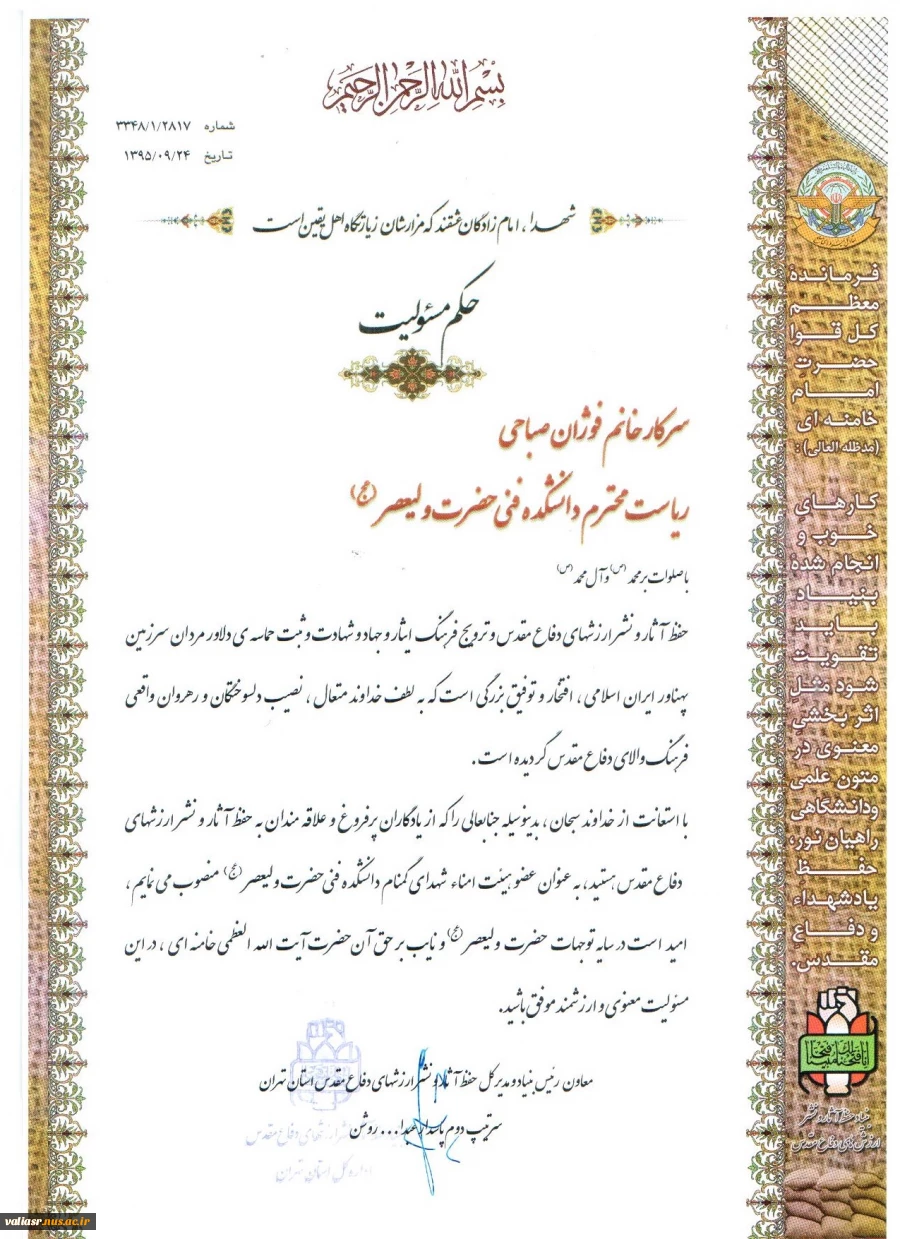 بسم الله الرحمن الرحیم
شماره ۳۳۴۸/۱/۲۸۱۷
تاریخ ۱۳۹۵/۰۹/۲۴
شهدا، امام زادگان عشقند که مزارشان زیارتگاه اهل یقین است
حکم مسئولیت
سرکار خانم فوژان صباحی
ریاست محترم دانشکده فنی حضرت ولیعصر (عج)
با صلوات بر محمد (ص) و آل محمد (ص)
حفظ آثار و نشر ارزشهای دفاع مقدس و ترویج فرهنگ ایثار و جهاد و شهادت و ثبت حماسه ی دلاور مردان سرزمین
پهناور ایران اسلامی ، افتخار و توفیق بزرگی است که به لطف خداوند متعال ، نصیب دلسوختگان و رهروان واقعی
فرهنگ والای دفاع مقدس گردیده است .
با استعانت از خداوند سبحان ، بدینوسیله جنابعالی را که از یادگاران پرفروغ و علاقه مندان به حفظ آثار و نشر ارزشهای
دفاع مقدس هستید، به عنوان عضو هیئت امناء شهدای گمنام دانشکده فنی حضرت ولیعصر (عج) منصوب می نمایم ،
امید است در سایه توجهات حضرت ولیعصر (عج) و نایب بر حق آن حضرت آیت الله العظمی خامنه ای ، در این
مسئولیت معنوی و ارزشمند موفق باشید.
معاون رئیس بنیاد و مدیر کل حفظ آثار و نشر ارزشهای دفاع مقدس استان تهران
سرتیپ دوم پاسدار عبدا... روشن
نشر ارزشهای دفاع مقدس
اداره کل استان تهران
فرماندهٔ
معظم
کل قوا
حضرت
امام
خامنه ای
(مدظله العالی) :
کارهای
خوب و
انجام شده
بنیاد
باید
تقویت
شود مثل
اثر بخشی
معنوی در
متون علمی
ودانشگاهی
راهیان نور،
حفظ
یادشهداء
و دفاع
مقدس.
انا فتحنا لک فتحا مبینا
بنیاد حفظ آثار و نشر
ارزش های دفاع مقدس
valiasr.nus.ac.ir